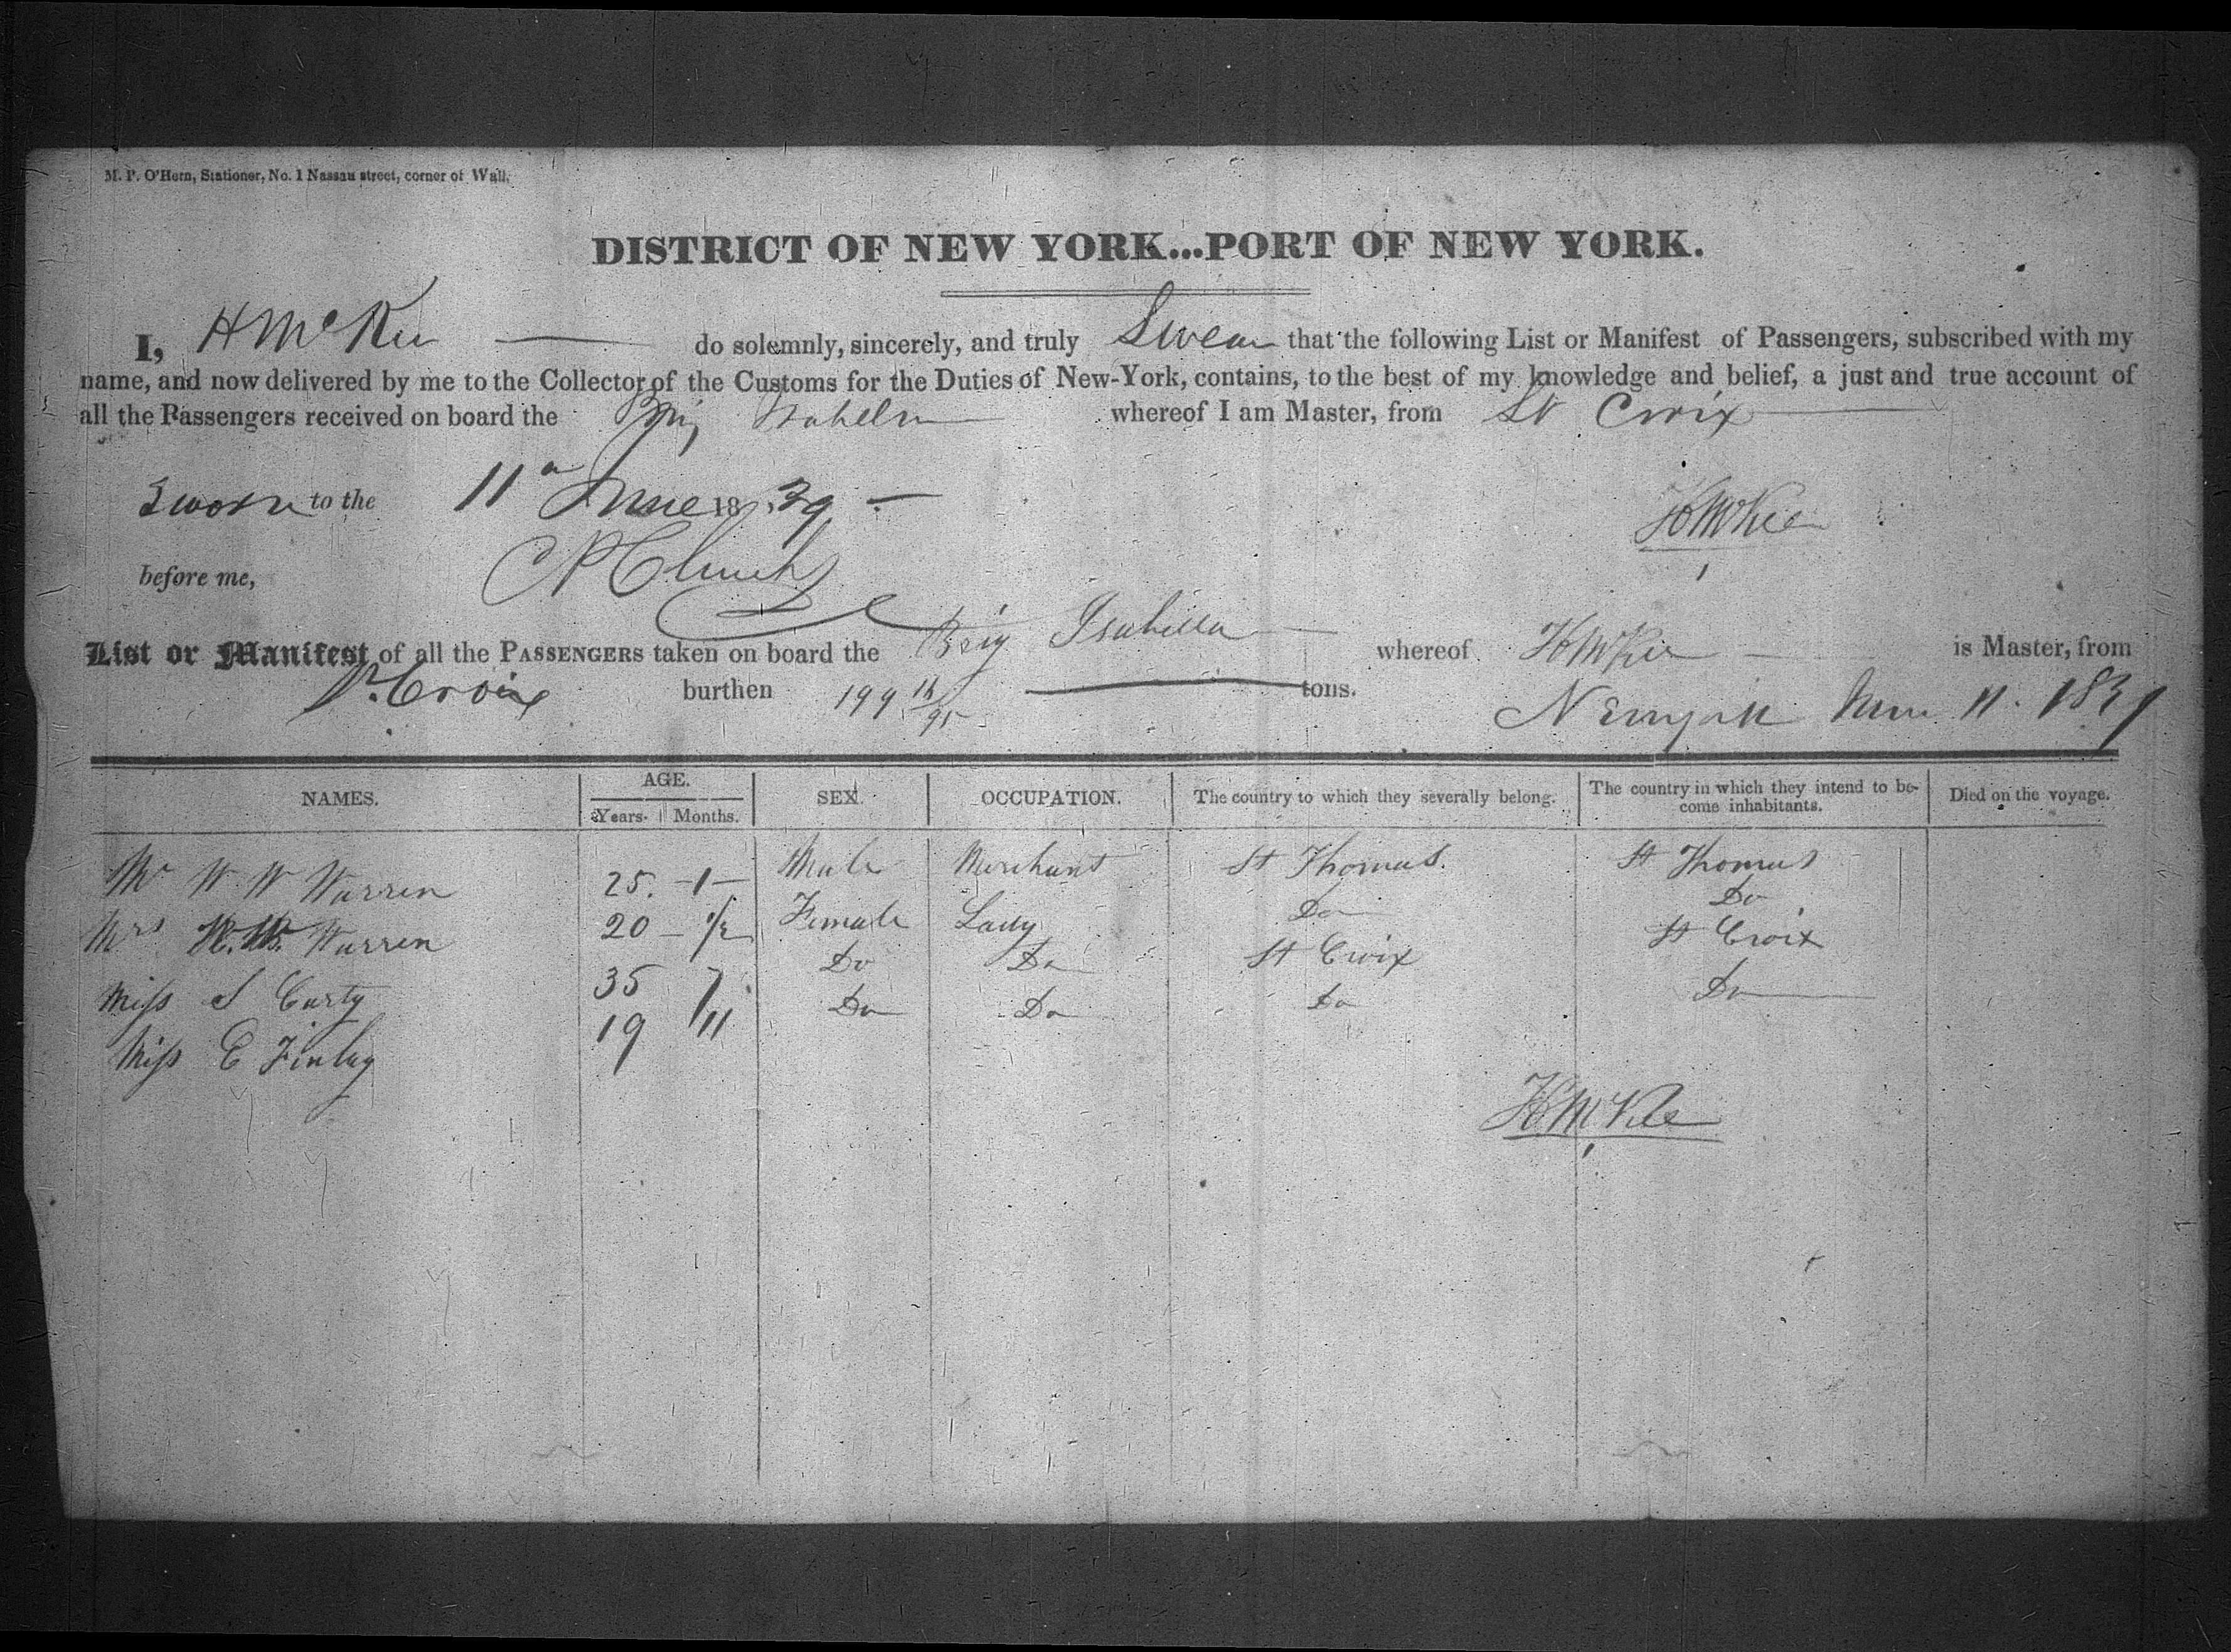 M. P. O'Hern, Stationer, No. 1 Nassau street, corner of Wall.
DISTRICT OF NEW YORK...PORT OF NEW YORK.
I, H McKee do solemnly, sincerely, and truly Swear that the following List or Manifest of Passengers, subscribed with my
name, and now delivered by me to the Collector of the Customs for the Duties of New-York, contains, to the best of my knowledge and belief, a just and true account of
all the Passengers received on board the Brig Isabella whereof I am Master, from St Croix
Sworn to the 11th June 1839
H McKee
before me,
List or Manifest of all the PASSENGERS taken on board the Brig Isabella whereof H McKee is Master, from
St. Croix burthen 199 /95 tons.
Newyork June 11. 1839
NAMES. AGE. Years. Months. SEX. OCCUPATION. The country to which they severally belong. The country in which they intend to become inhabitants. Died on the voyage.
Mr W W Warren 25 - 1 - Male Merchant St Thomas. St Thomas
Mrs Warren 20 Female Lady Do Do
Miss S Carty 35 7 Do Do St Croix St Croix
Miss E Finlay 19 11 Do Do Do Do
H McKee